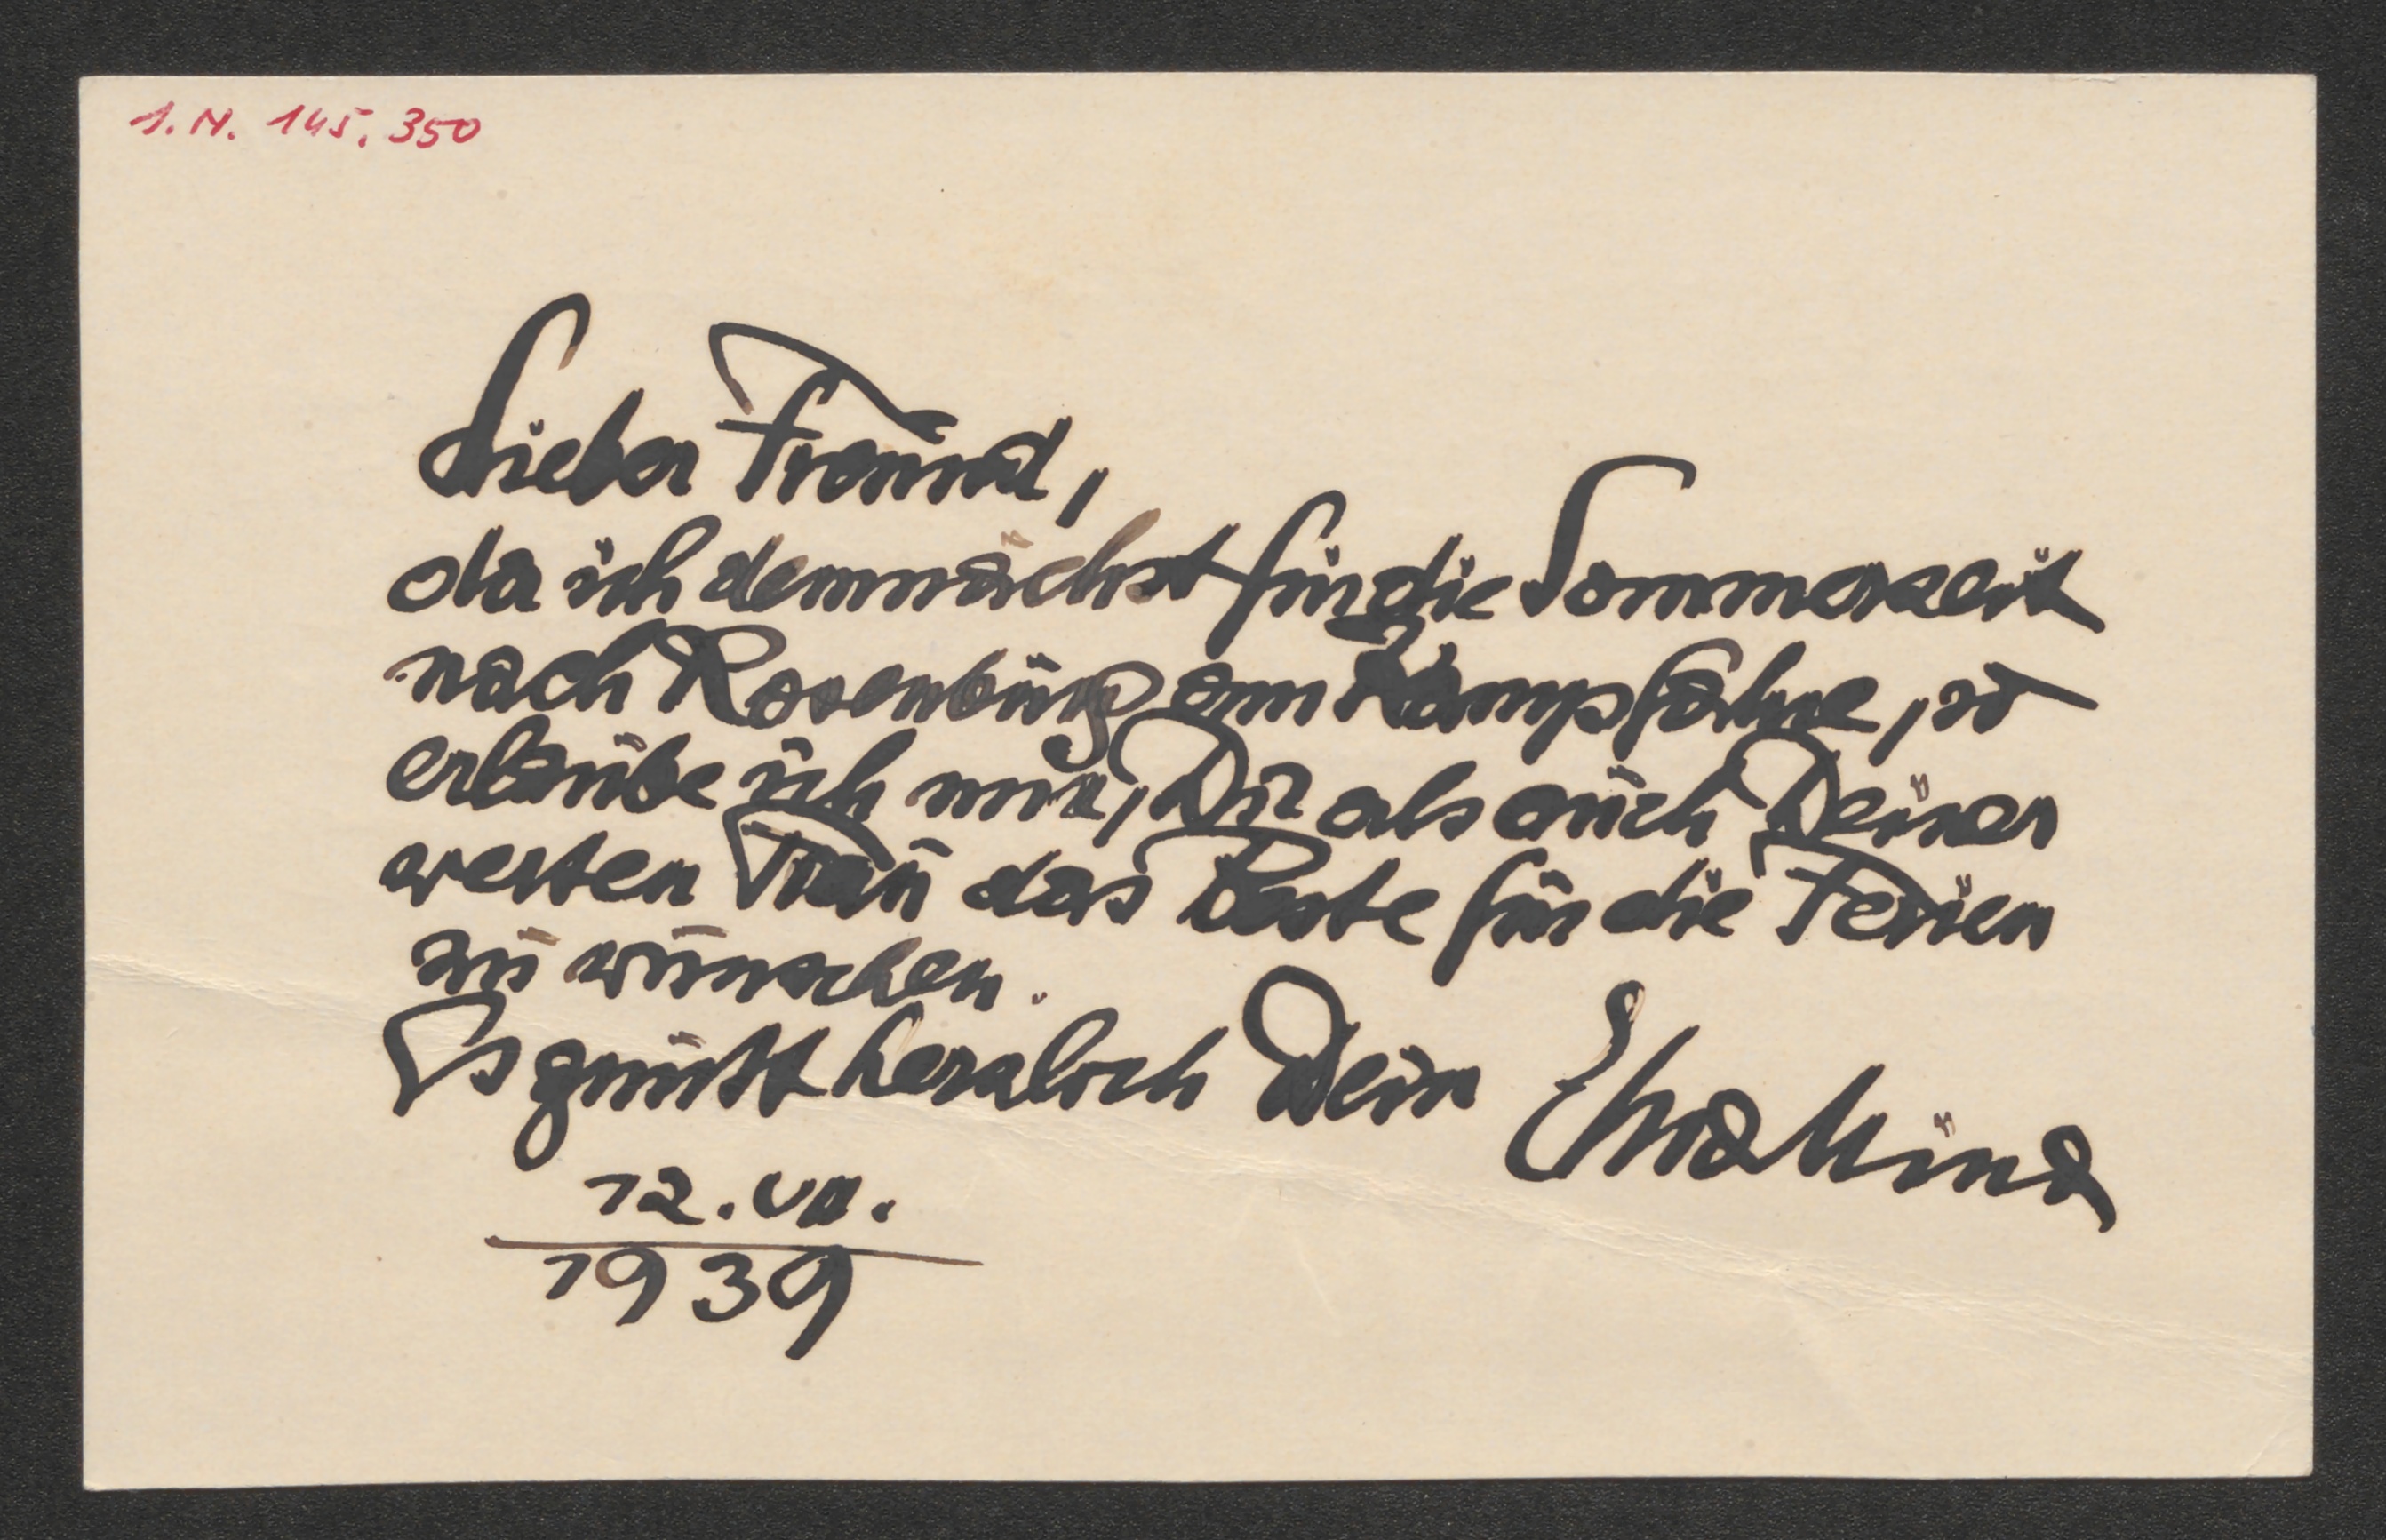 I.N. 145.350
Lieber Freund,
da ich demnächst für die Sommerszeit
nach Rosenburg am Kamp fahre, so
erlaube ich mir, Dir als auch Deiner
werten Frau das Beste für die Ferien
zu wünschen.
Es grüßt herzlich Dein
12.VII.
1939